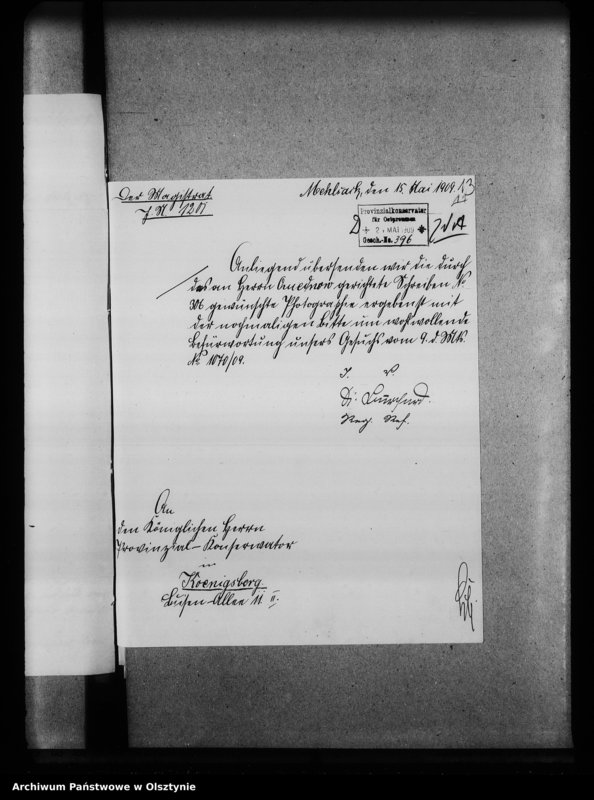 Der Magistrat
J N 1201
Mehlsack, den 15. Mai 1909.
Provinzialkonservator
für Ostpreussen
MAI 1909
Gesch.-No. 396
Anliegend übersenden wir die durch
das an Herrn gerichtete Schreiben No
gewünschte Photographie ergebenst mit
der nochmaligen Bitte um wohlwollende
Befürwortung unsers Gesuchs vom 9. d. Mts.
No 1070/09.
I. V.
An
den Königlichen Herrn
Provinzial-Konservator
in
Koenigsberg
Allee 11 II.
Archiwum Państwowe w Olsztynie